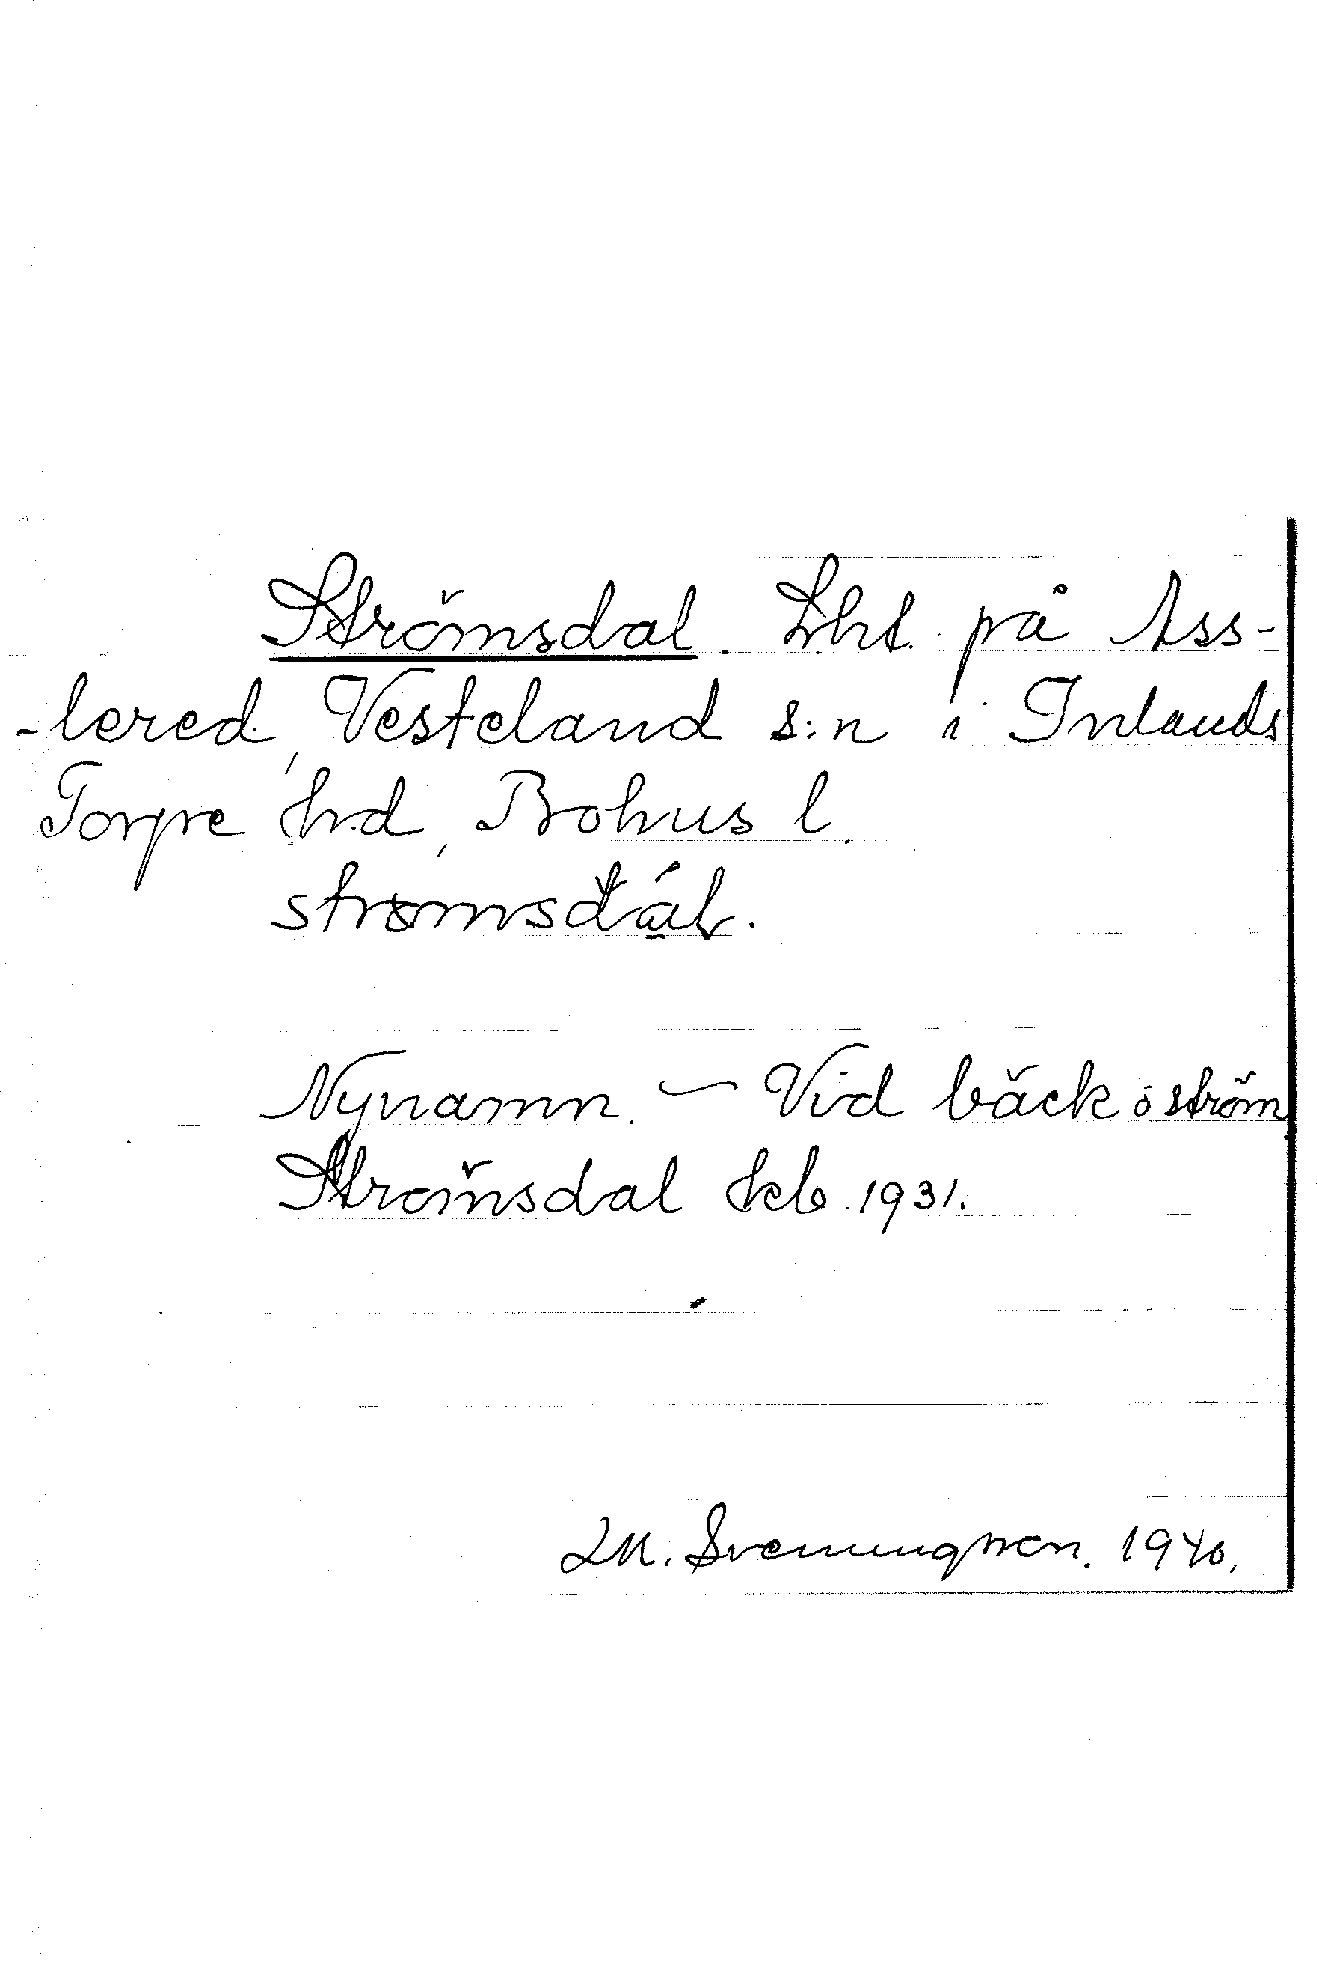 Strömsdal. Lht. på Ass-
-lered, Vesteland s:n i Inlands
Torpe hd, Bohus l.
Nynamn. – Vid bäck o ström
Strömsdal Jkb 1931.
M. Svenungsson. 1940.